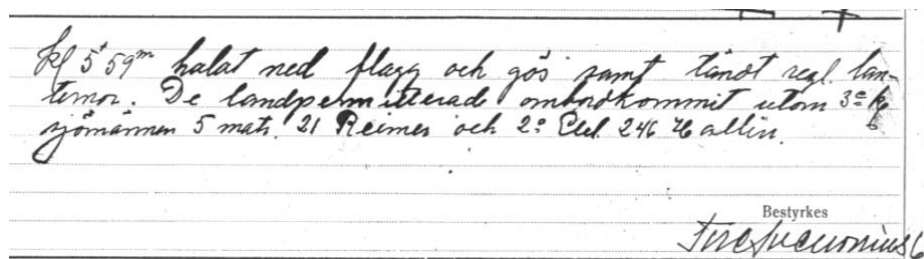 Kl 5'59m halat ned flagg och gös samt tändt regl. lan-
ternor. De landpermitterade ombordkommit utom 3e kl
sjömännen 5 matr. 21 Reimer och 2a Eld. 246 Hallin.
Bestyrkes